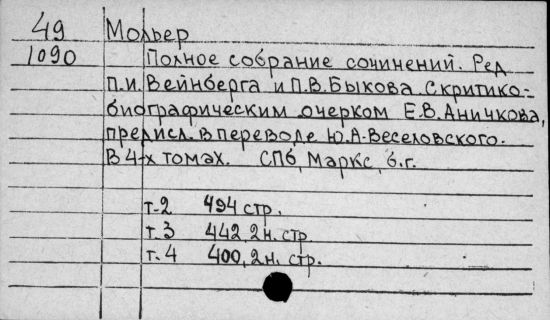 49 Мольер
1090 Полное собрание сочинений. Ред
П.И. Вейнберга и П.В. Быкова. С критико-
биографическим очерком Е.В. Аничкова,
предисл. в переводе Ю.А. Веселовского.
В 4-х томах. СПб, Маркс, б.г.
т.2 494 стр.
т.3 442, 2 н. стр
т.4 400, 2 н. стр.